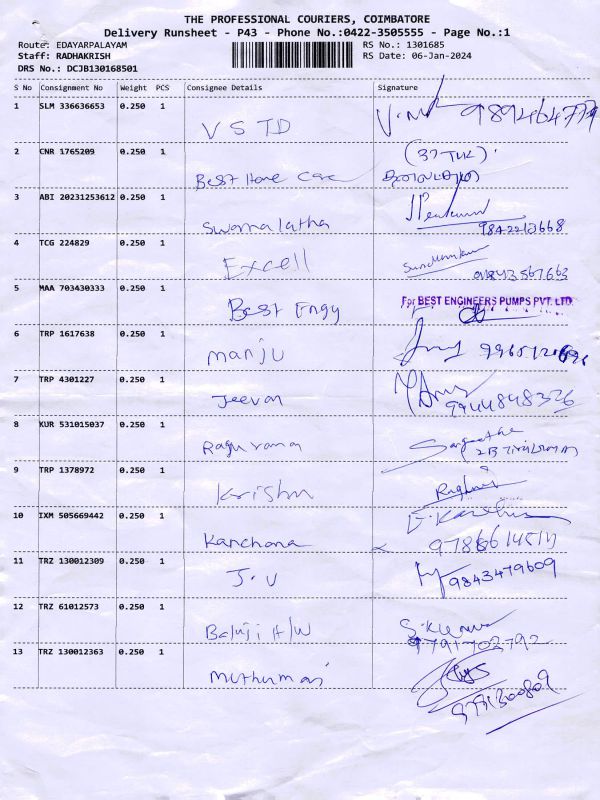 THE PROFESSIONAL COURIERS, COIMBATORE
Delivery Runsheet - P43 - Phone No.:0422-3505555 - Page No.:1
Route: EDAYARPALAYAM RS No.: 1301685
Staff: RADHAKRISH RS Date: 06-Jan-2024
DRS No.: DCJB130168501
S No Consignment No Weight PCS Consignee Details Signature
1 SLM 336636653 0.250 1 VSTD
2 CNR 1765209 0.250 1 Best Home Care
3 ABI 20231253612 0.250 1 Swornalatha
4 TCG 224829 0.250 1 Excell
5 MAA 703430333 0.250 1 Best Engy For BEST ENGINEERS PUMPS PVT. LTD.
6 TRP 1617638 0.250 1 manju
7 TRP 4301227 0.250 1 Jeevan 9944848326
8 KUR 531015037 0.250 1 Raguvarna Sangeetha
9 TRP 1378972 0.250 1 Krishn
10 IXM 505669442 0.250 1 Kanchana
11 TRZ 130012309 0.250 1 J.V 9843479609
12 TRZ 61012573 0.250 1 Balaji H/W 9791702792
13 TRZ 130012363 0.250 1